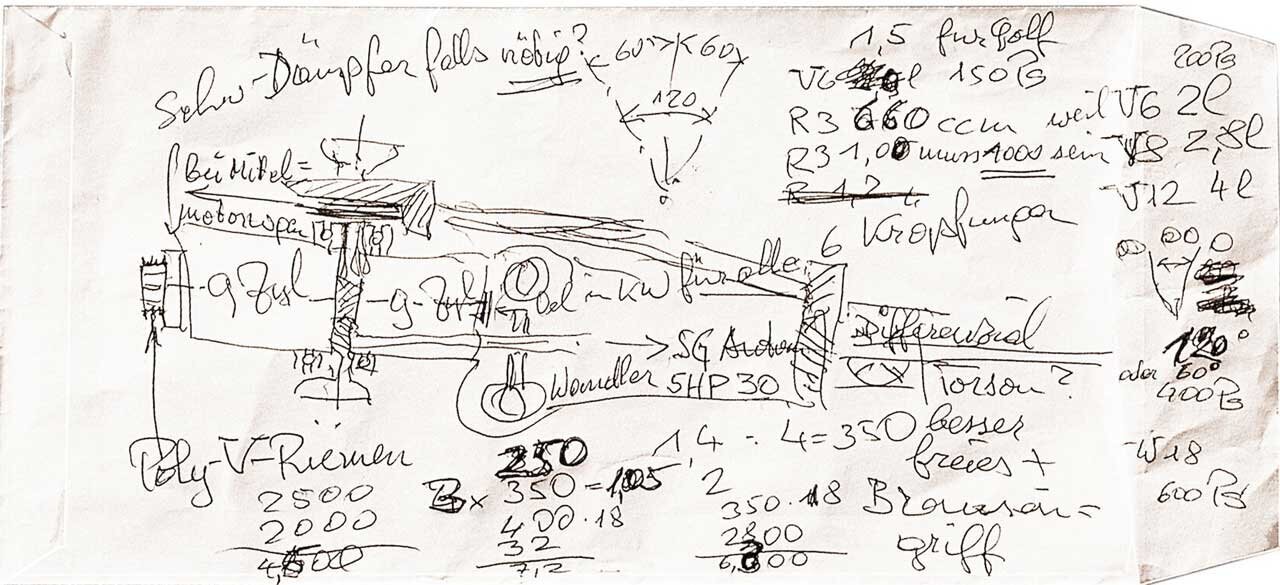 Schw-Dämpfer falls nötig?
60° 60
120
1,5 für Golf
V6 l 150 PS
R3 660 ccm weil V6 2l
R3 1,00 muss 1000 sein V8 2,8l
R 1,2
V12 4l
200 PS
6 Kröpfungen
Bei Mittel=
motorvorn
9 Zyl
9-Zyl
Öl in KW für alle
SG
Wandler 5HP30
Differenzial
Torsen?
besser
freies +
Bremsen=
griff
120°
oder 60°
400 PS
W18
600 PS
Poly-V-Riemen
2500
2000
4,500
250
3x 350 = 1,05
400 · 18
32
7,2
1,4 : 4 = 350
2
350 · 18
2800
6,300